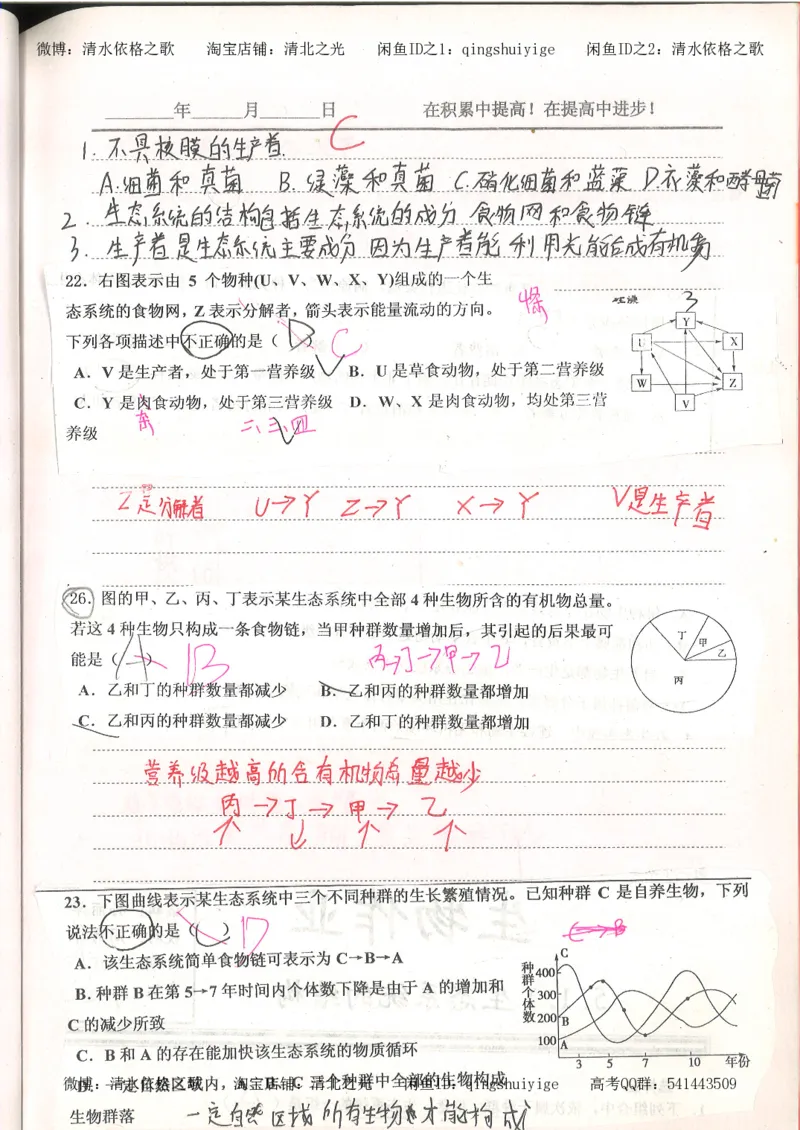 微博：清水依格之歌 淘宝店铺：清北之光 闲鱼ID之1：qingshuiyige 闲鱼ID之2：清水依格之歌
年 月 日 在积累中提高！在提高中进步！
1. 不具核膜的生产者. C
A.细菌和真菌 B. 绿藻和真菌 C.硝化细菌和蓝藻 D.衣藻和酵母菌
2. 生态系统的结构包括生态系统的成分 食物网和食物链
3. 生产者是生态系统主要成分 因为生产者能利用光能合成有机物
22．右图表示由 5 个物种(U、V、W、X、Y)组成的一个生
态系统的食物网，Z 表示分解者，箭头表示能量流动的方向。
下列各项描述中不正确的是（D） C
A．V 是生产者，处于第一营养级 B．U 是草食动物，处于第二营养级
C．Y 是肉食动物，处于第三营养级 D．W、X 是肉食动物，均处第三营
养级 二、三、四
3
Y
U X
W Z
V
Z是分解者 U→Y Z→Y X→Y V是生产者
26．图的甲、乙、丙、丁表示某生态系统中全部 4 种生物所含的有机物总量。
若这 4 种生物只构成一条食物链，当甲种群数量增加后，其引起的后果最可
能是（A） B 丙→丁→甲→乙
A．乙和丁的种群数量都减少 B．乙和丙的种群数量都增加
C．乙和丙的种群数量都减少 D．乙和丁的种群数量都增加
丁 甲
乙
丙
营养级越高的含有机物总量越少
丙→丁→甲→乙
23．下图曲线表示某生态系统中三个不同种群的生长繁殖情况。已知种群 C 是自养生物，下列
说法不正确的是（ ） D
A．该生态系统简单食物链可表示为 C→B→A
B．种群 B 在第 5→7 年时间内个体数下降是由于 A 的增加和
C 的减少所致
C．B 和 A 的存在能加快该生态系统的物质循环
D．一定自然区域内，A、B、C 三个种群中全部的生物构成
生物群落 一定自然区域所有生物才能构成
种群个体数
400
300
200
100
C
B
A
3 5 7 10 年份
微博：清水依格之歌 淘宝店铺：清北之光 闲鱼ID：qingshuiyige 高考QQ群：541443509